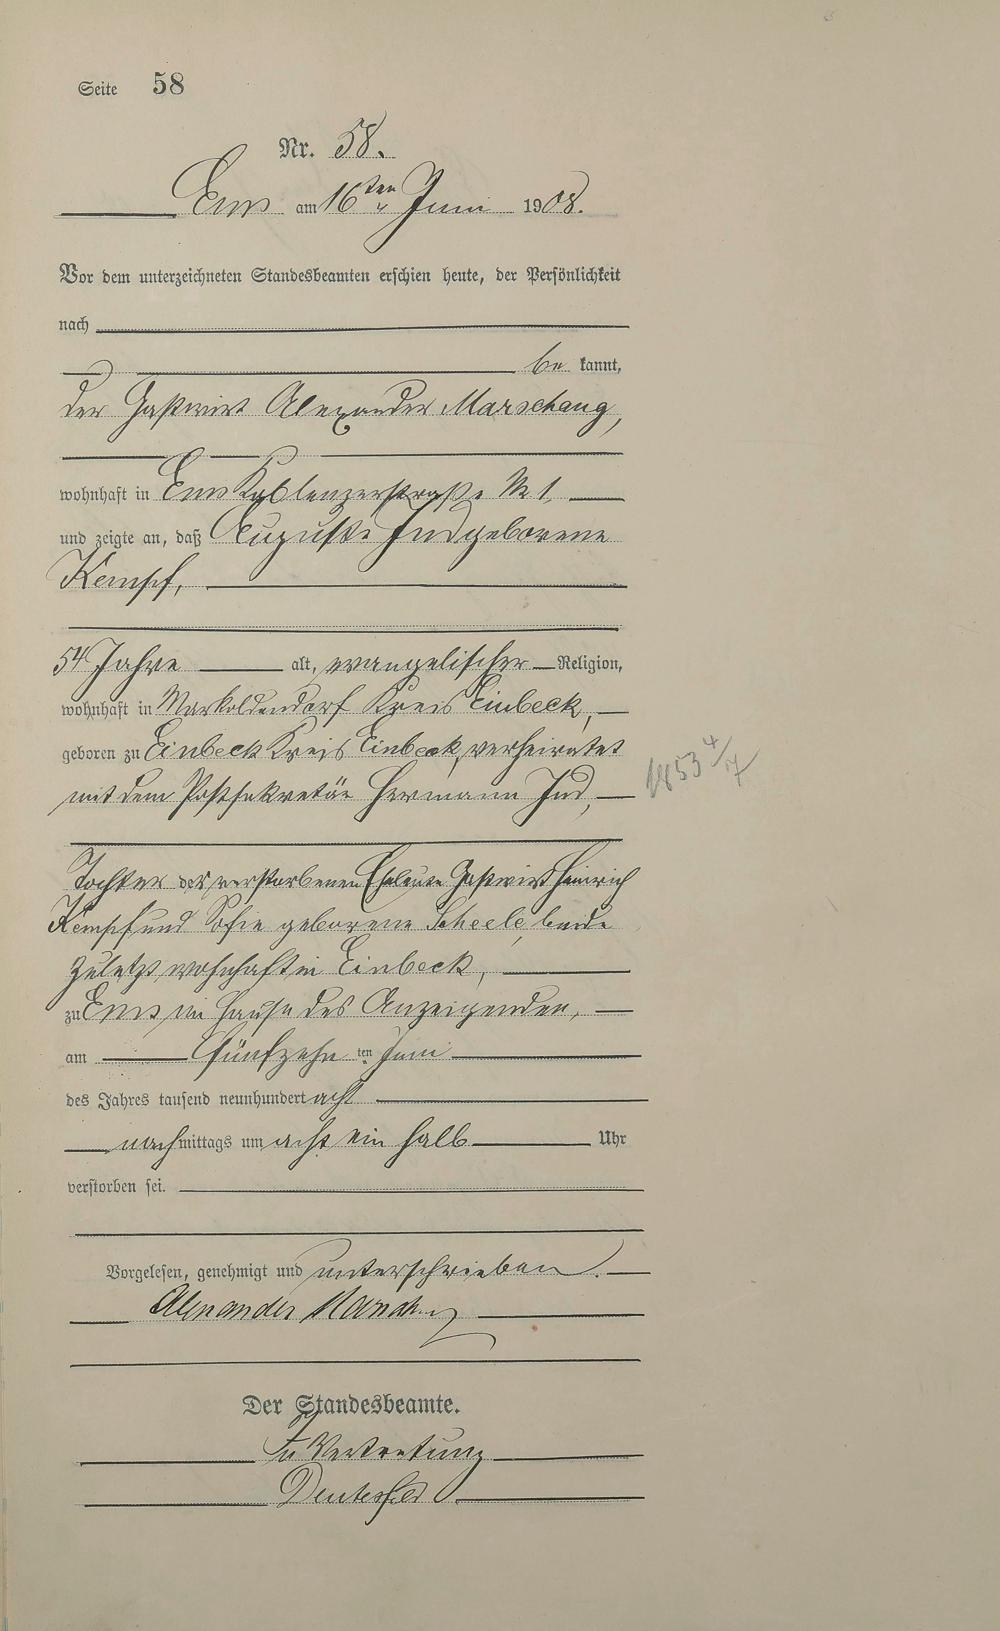 Seite 58
Nr. 58.
Ems am 16ten Juni 1908.
Vor dem unterzeichneten Standesbeamten erschien heute, der Persönlichkeit
nach
be kannt,
der Gastwirt Alexander Marschang,
wohnhaft in Ems Koblenzerstraße Nr 1,
und zeigte an, daß Auguste Jud geborene
Kempf,
54 Jahre alt, evangelischer Religion,
wohnhaft in Markoldendorf Kreis Einbeck,
geboren zu Einbeck Kreis Einbeck, verheiratet
mit dem Postsekretär Hermann Jud,
1853 4/7
Tochter der verstorbenen Eheleute Gastwirt Heinrich
Kempf und Sofie geborene Scheele, beide
zuletzt wohnhaft in Einbeck,
zu Ems im Hause des Anzeigenden,
am fünfzehn ten Juni
des Jahres tausend neunhundert acht
nachmittags um acht ein halb Uhr
verstorben sei.
Vorgelesen, genehmigt und unterschrieben.
Alexander Marschang
Der Standesbeamte.
In Vertretung